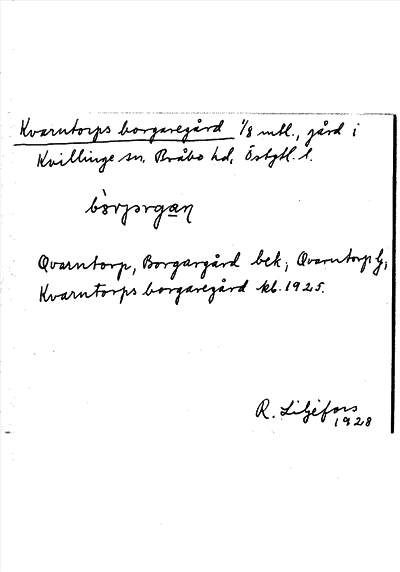 Kvarntorps borgaregård 1/8 mtl., gård i
Kvillinge sn. Bråbo hd, Östgtl. l.
Qvarntorp, Borgargård bek; Qvarntorp G;
Kvarntorps borgaregård kb. 1925.
R. Liljefors
1928